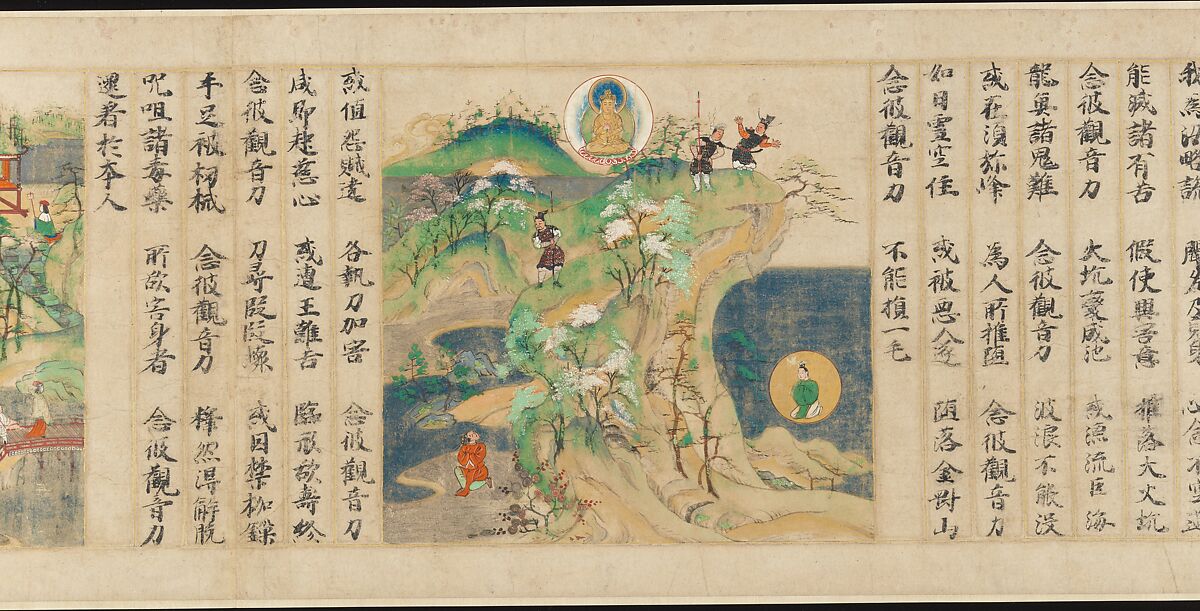 我為汝略說 聞名及見身 心念不空過
能滅諸有苦 假使興害意 推落大火坑
念彼觀音力 火坑變成池 或漂流巨海
龍魚諸鬼難 念彼觀音力 波浪不能没
或在須弥峰 為人所推墮 念彼觀音力
如日虚空住 或被惡人逐 墮落金剛山
念彼觀音力 不能損一毛
或值怨賊遶 各執刀加害 念彼觀音力
咸即起慈心 或遭王難苦 臨刑欲壽終
念彼觀音力 刀尋段段壞 或囚禁枷鎖
手足被杻械 念彼觀音力 釋然得解脫
呪咀諸毒藥 所欲害身者 念彼觀音力
還著於本人